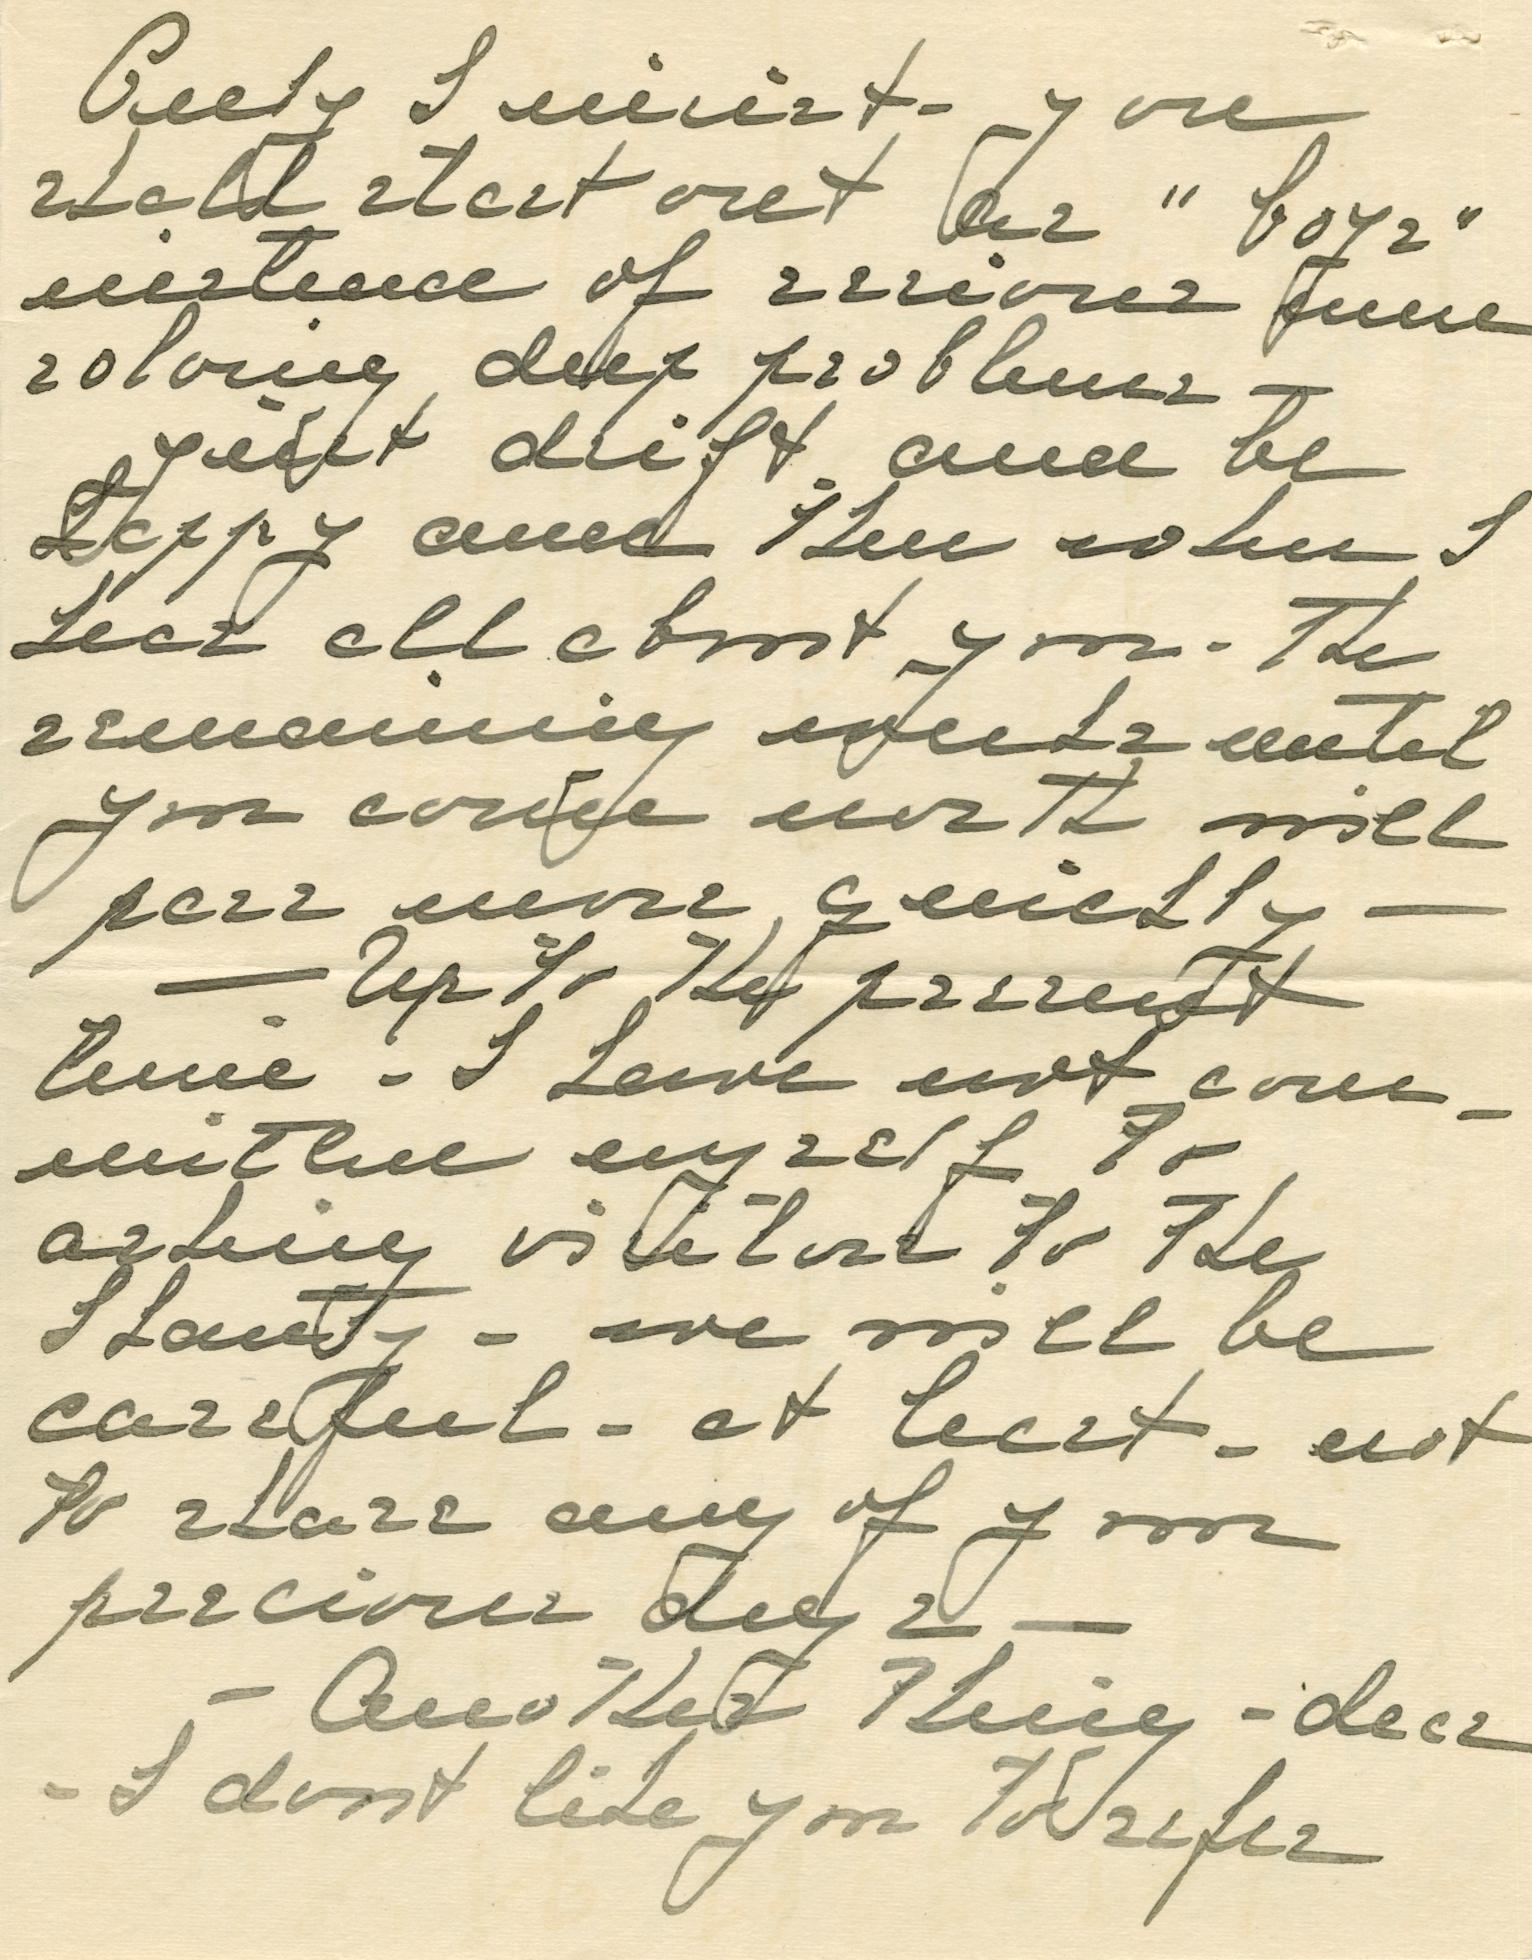 Only I insist - you
shall start out as "boys"
instead of serious men
solving deep problems -
just drift and be
happy and then when I
hear all about you - the
remaining weeks until
you come north will
pass more quickly —
— Up to the present
time - I have not com-
mitted myself to
asking visitors to the
Shanty - we will be
careful - at least - not
to share any of your
precious days —
- Another thing - dear
- I dont like you to refer